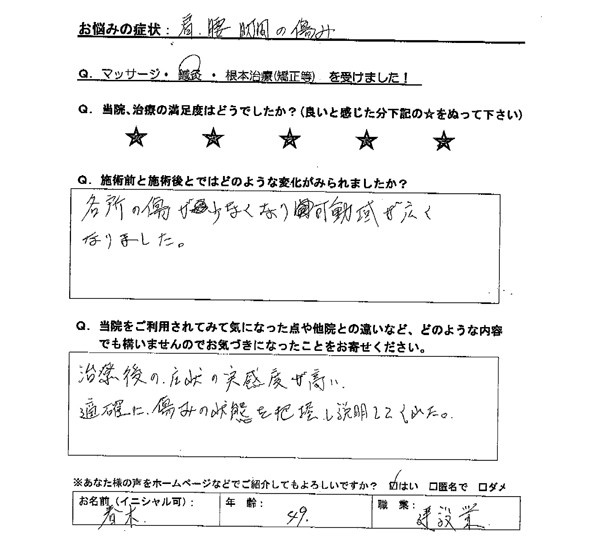 お悩みの症状：肩、腰 の傷み
Q．マッサージ・鍼灸・根本治療(矯正等) を受けました！
Q．当院、治療の満足度はどうでしたか？(良いと感じた分下記の☆をぬって下さい)
★ ★ ★ ★ ★
Q．施術前と施術後とではどのような変化がみられましたか？
各所の傷が少なくなり可動域が広く
なりました。
Q．当院をご利用されてみて気になった点や他院との違いなど、どのような内容
でも構いませんのでお気づきになったことをお寄せください。
治療後の、症状の実感度が高い、
適確に、傷みの状態を把握し説明してくれた。
※あなた様の声をホームページなどでご紹介してもよろしいですか？ ☑はい □匿名で □ダメ
お名前(イニシャル可)： 年 齢： 職 業：
春木 49. 建設業